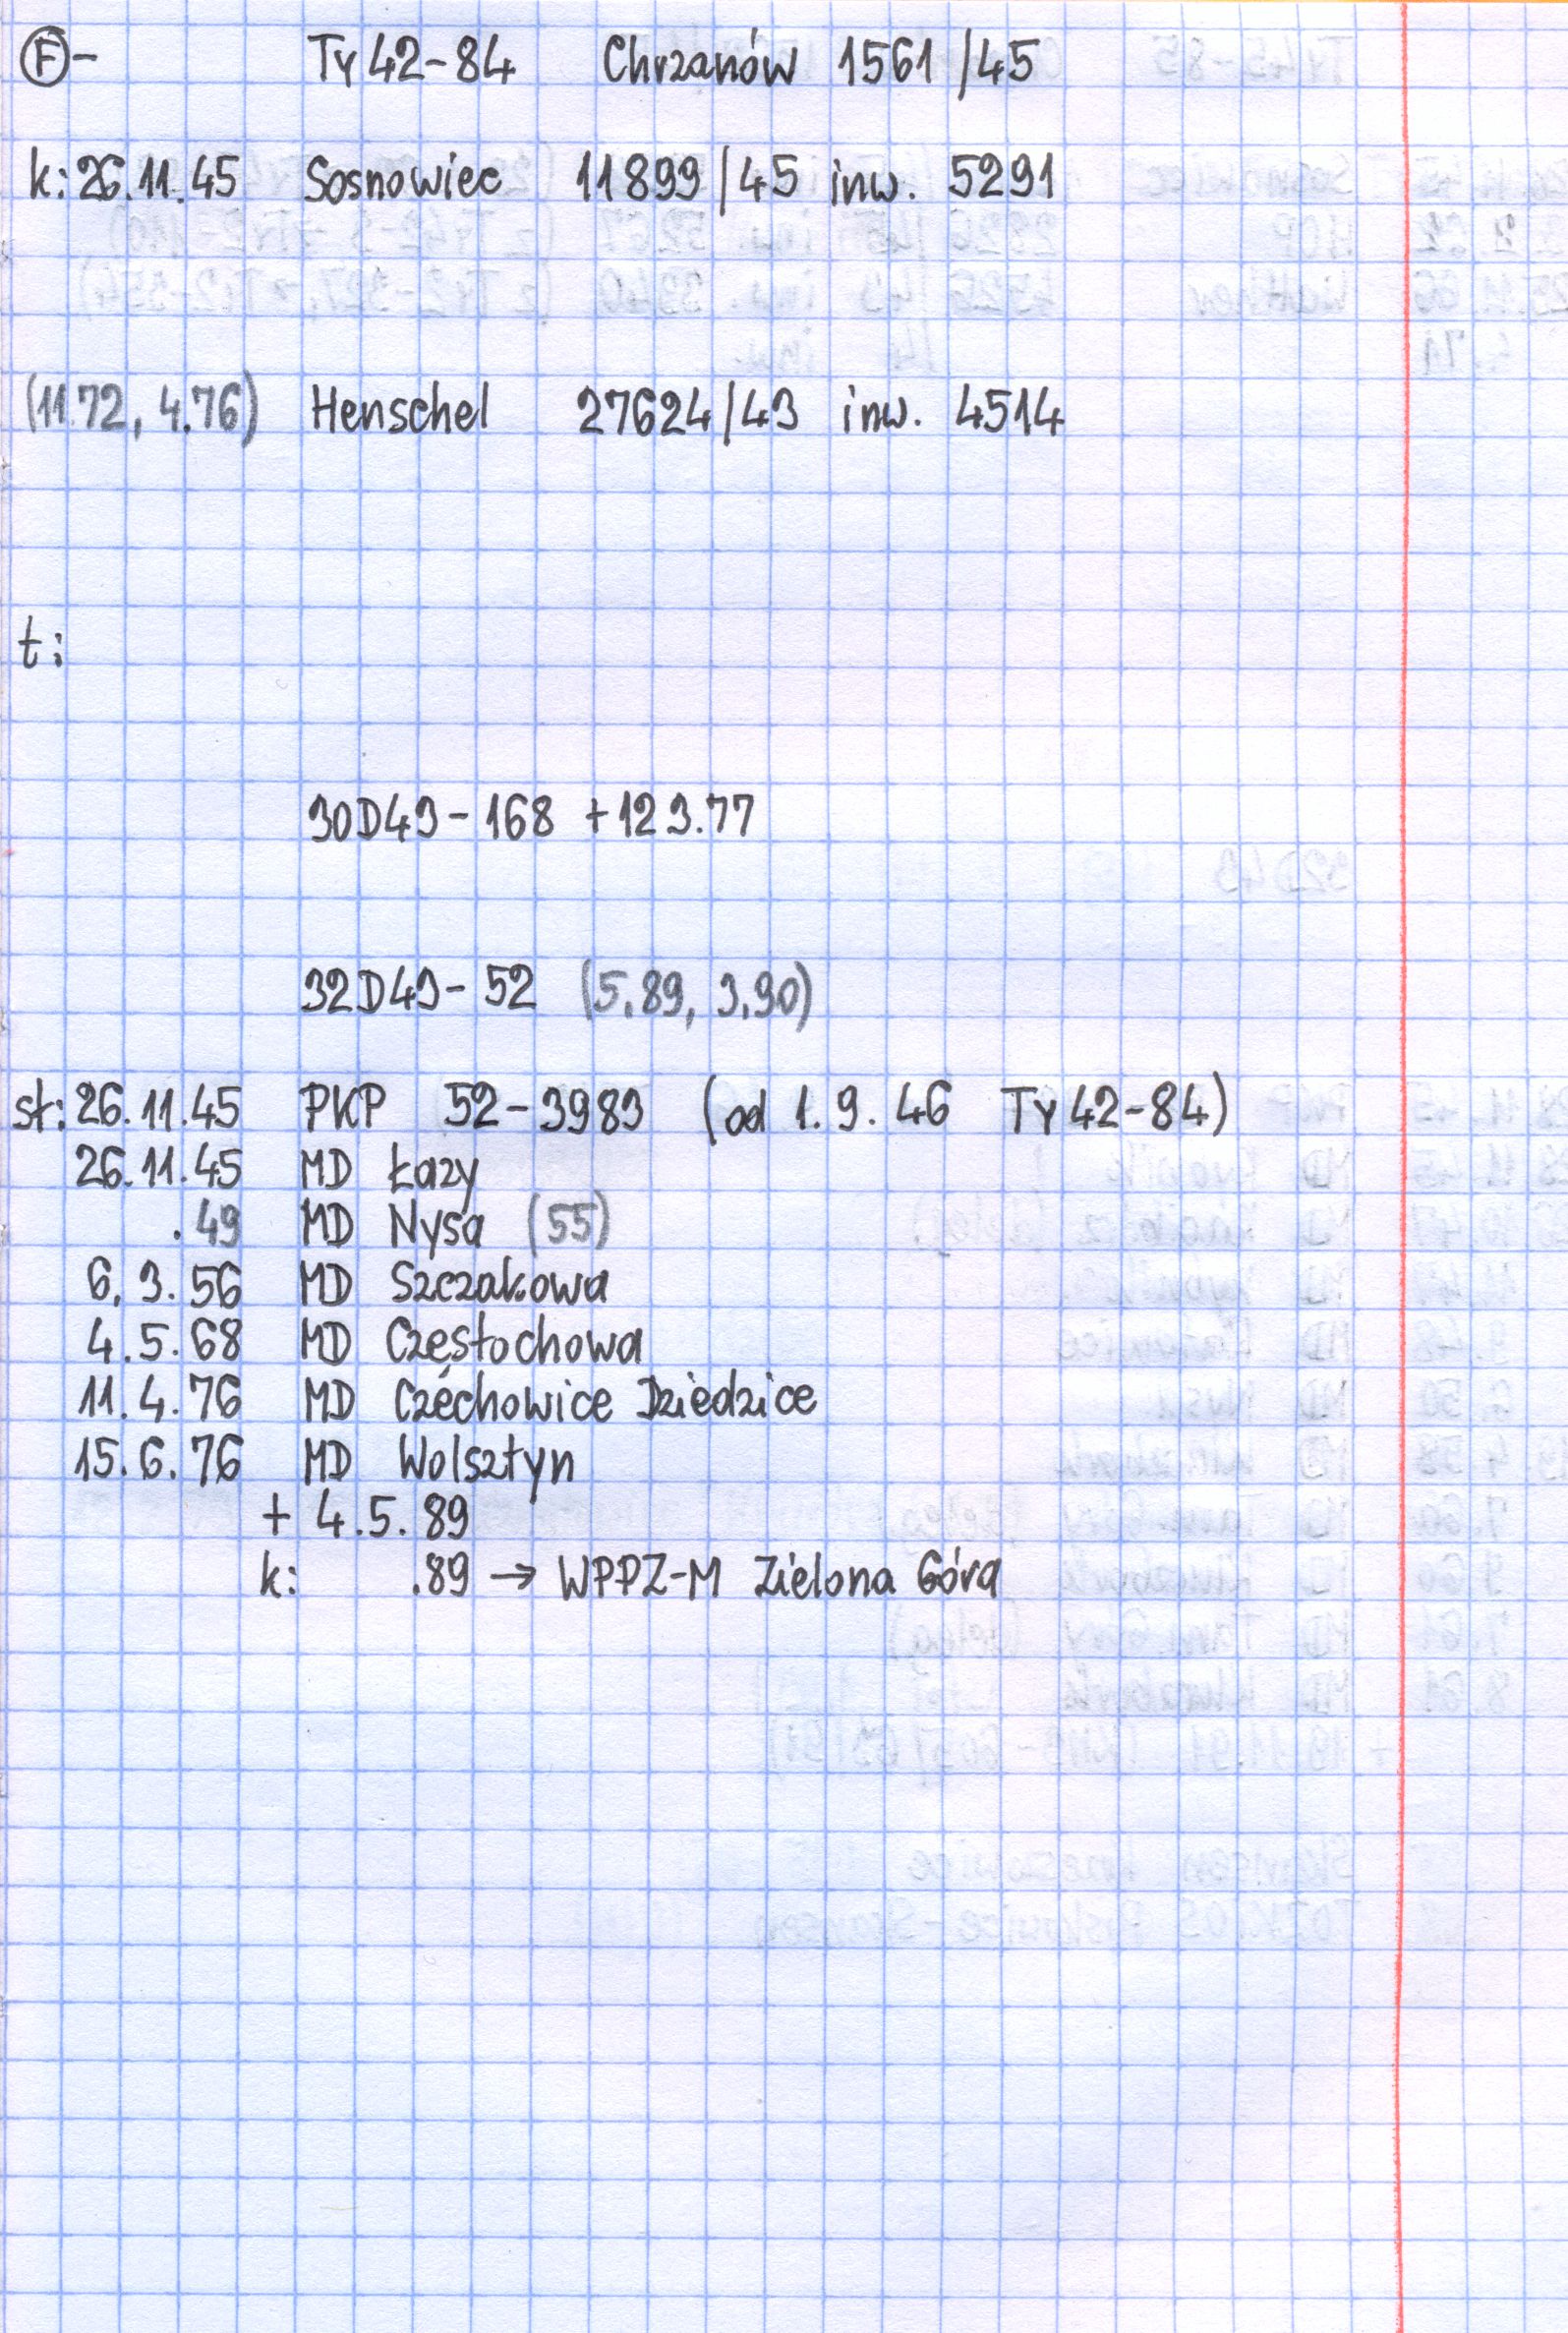 F- Ty42-84 Chrzanów 1561/45
k: 26.11.45 Sosnowiec 11899/45 inw. 5291
(11.72, 4.76) Henschel 27624/43 inw. 4514
t:
30D43-168 +12 3.77
32D43-52 (5.89, 3.90)
st: 26.11.45 PKP 52-3983 (od 1.9.46 Ty42-84)
26.11.45 MD Łazy
.49 MD Nysa (55)
6.3.56 MD Szczakowa
4.5.68 MD Częstochowa
11.4.76 MD Czechowice Dziedzice
15.6.76 MD Wolsztyn
+ 4.5.89
k: .89 → WPPZ-M Zielona Góra